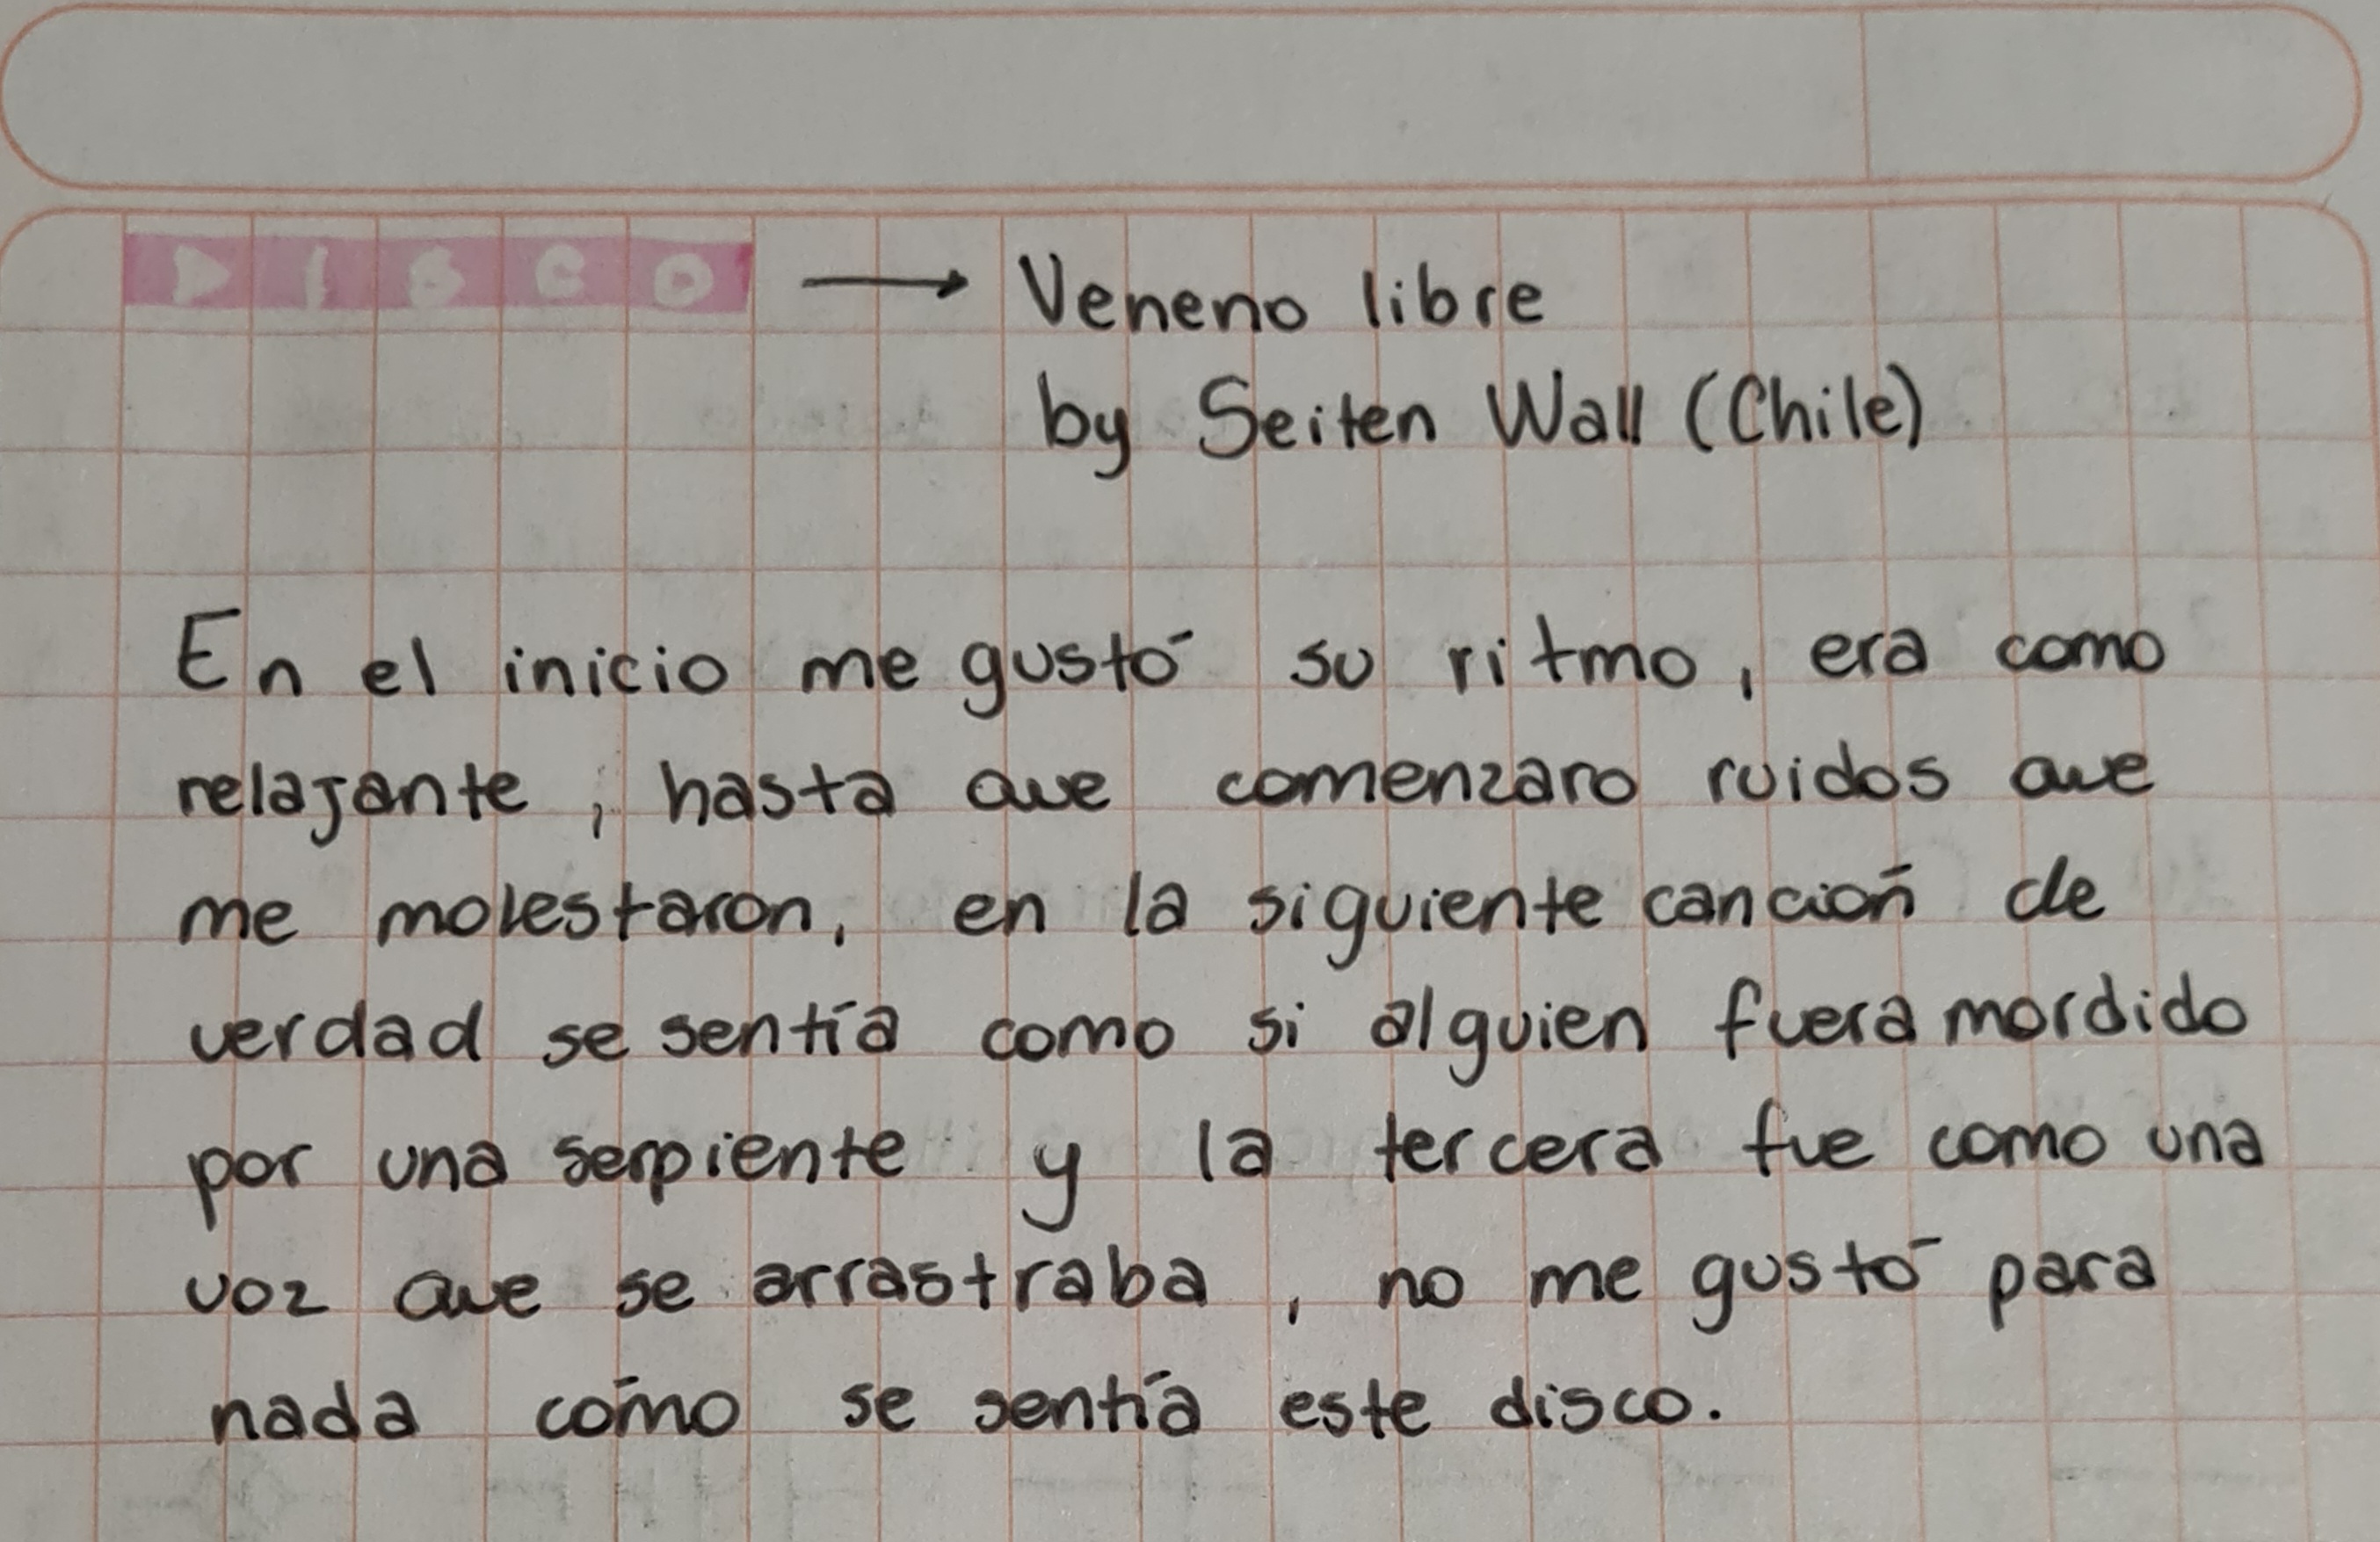 DISCO → Veneno libre
by Seiten Wall (Chile)
En el inicio me gustó su ritmo, era como
relajante, hasta que comenzaro ruidos que
me molestaron, en la siguiente canción de
verdad se sentía como si alguien fuera mordido
por una serpiente y la tercera fue como una
voz que se arrastraba, no me gustó para
nada cómo se sentía este disco.